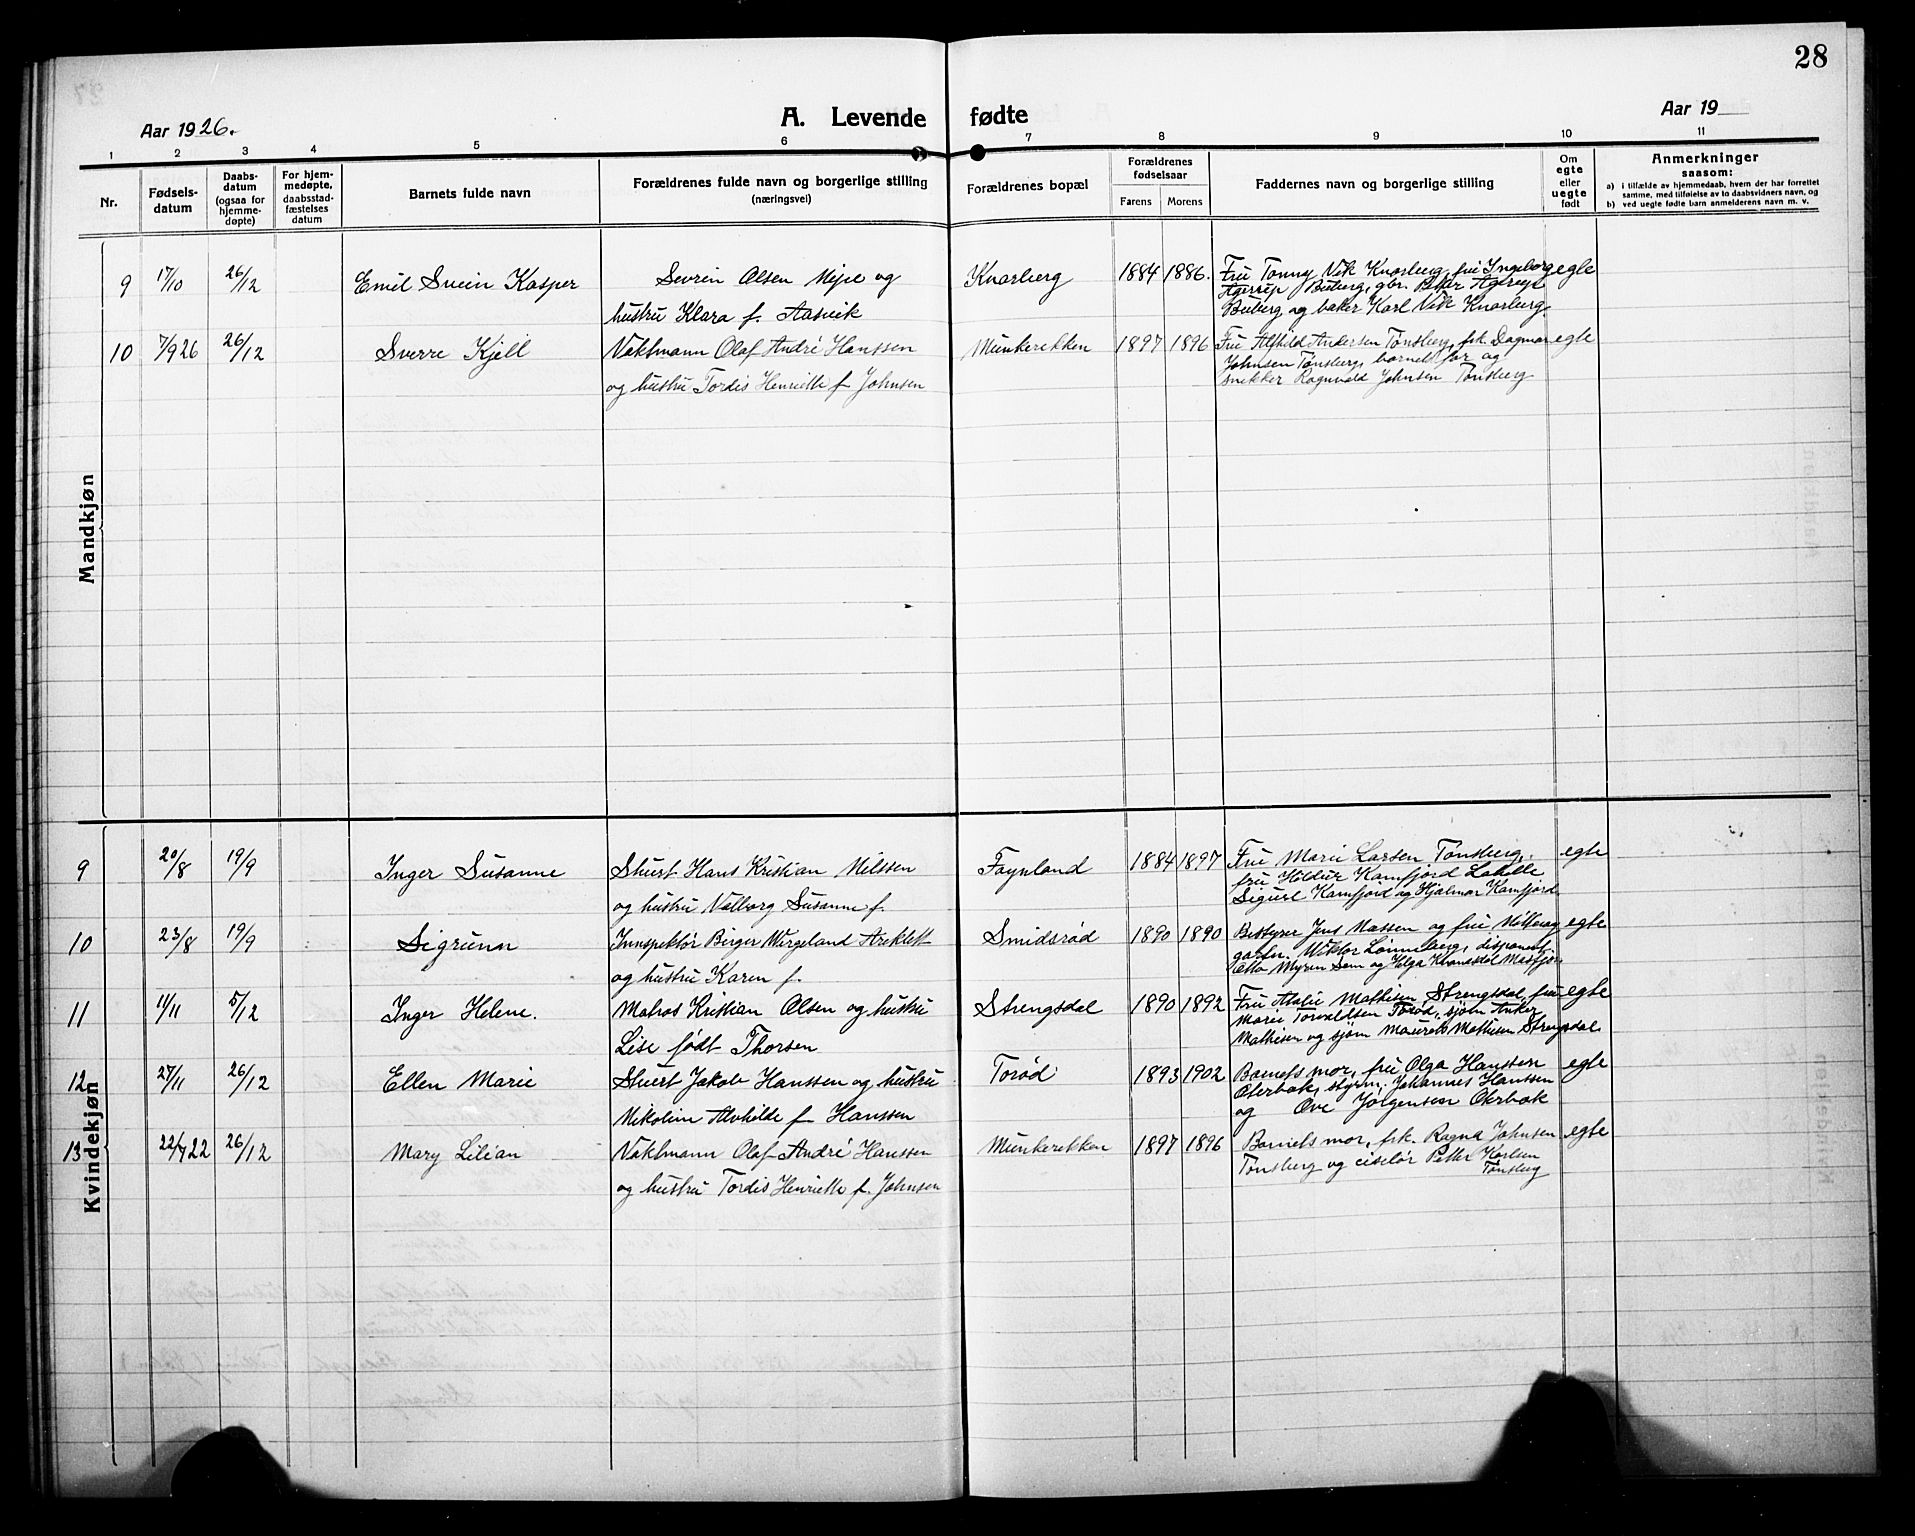 28
A. Levende fødte
Aar 1926.
Aar 19
1 2 3 4 5 6 7 8 9 10 11
Nr.
Fødsels-
datum
Daabs-
datum
(ogsaa for
hjemme-
døpte)
For hjem-
medøpte,
daabsstad-
fæstelses
datum
Barnets fulde navn
Forældrenes fulde navn og borgerlige stilling
(næringsvei)
Forældrenes bopæl
Forældrenes
fødselsaar
Farens Morens
Faddernes navn og borgerlige stilling
Om
egte
eller
uegte
født
Anmerkninger
saasom:
a) i tilfælde av hjemmedaab, hvem der har forrettet
samme, med tilføielse av to daabsvidners navn, og
b) ved uegte fødte barn anmelderens navn m. v.
Mandkjøn
9 17/10 26/12 Emil Svein Kasper
Sevrin Olsen og
hustru Klara f. Aasvik
Knarberg 1884 1886.
Fru Tonny Vik Knarberg, fru Ingeborg
Agerup Buberg, gbr. Peter Agerup
Buberg og baker Karl Vik Knarberg.
egte
10 7/9 26 26/12 Sverre Kjell
Vaktmann Olaf André Hanssen
og hustru Tordis Henriette f. Johnsen
Munkerekken 1897 1896
Fru Alfhild Andersen Tønsberg, frk. Dagmar
Johnsen Tønsberg, barnets far og
snekker Ragnvald Johnsen Tønsberg
egte
Kvindekjøn
9 20/8 19/9 Inger Susanne
Stuert Hans Kristian Nilssen
og hustru Valborg Susanne f.
Føynland 1884 1897
Fru Marie Larsen Tønsberg,
fru Hildur Kamfjord
Sigurd Kamfjord og Hjalmar Kamfjord
egte
10 23/8 19/9 Sigrunn
Innspektør Birger Wergeland
og hustru Karen f.
Smidsrød 1890 1890
Bestyrer Jens Massen og fru
Wiktor Lønneberg, disponent
Otto Myren Sem og Helga
egte
11 11/11 5/12 Inger Helene.
Matros Kristian Olsen og hustru
Lise født Thorsen
Strengsdal 1890 1892
Fru Mathisen Strengsdal, fru
Marie Torvaldsen Torød, sjøm Anker
Mathisen og sjøm Mathisen Strengsdal
egte
12 27/11 26/12 Ellen Marie
Stuert Jakob Hanssen og hustru
Nikoline Alvhilde f. Hanssen
Torød 1893 1902
Barnets mor, fru Olga Hanssen
Oterbæk, styrm. Johannes Hanssen
og Ove Jørgensen Oterbæk
egte
13 22/7 22 26/12 Mary Lilian
Vaktmann Olaf André Hanssen
og hustru Tordis Henriette f. Johnsen
Munkerekken 1897 1896
Barnets mor, frk. Ragna Johnsen
Tønsberg og ciselør Petter Karlsen
Tønsberg
egte